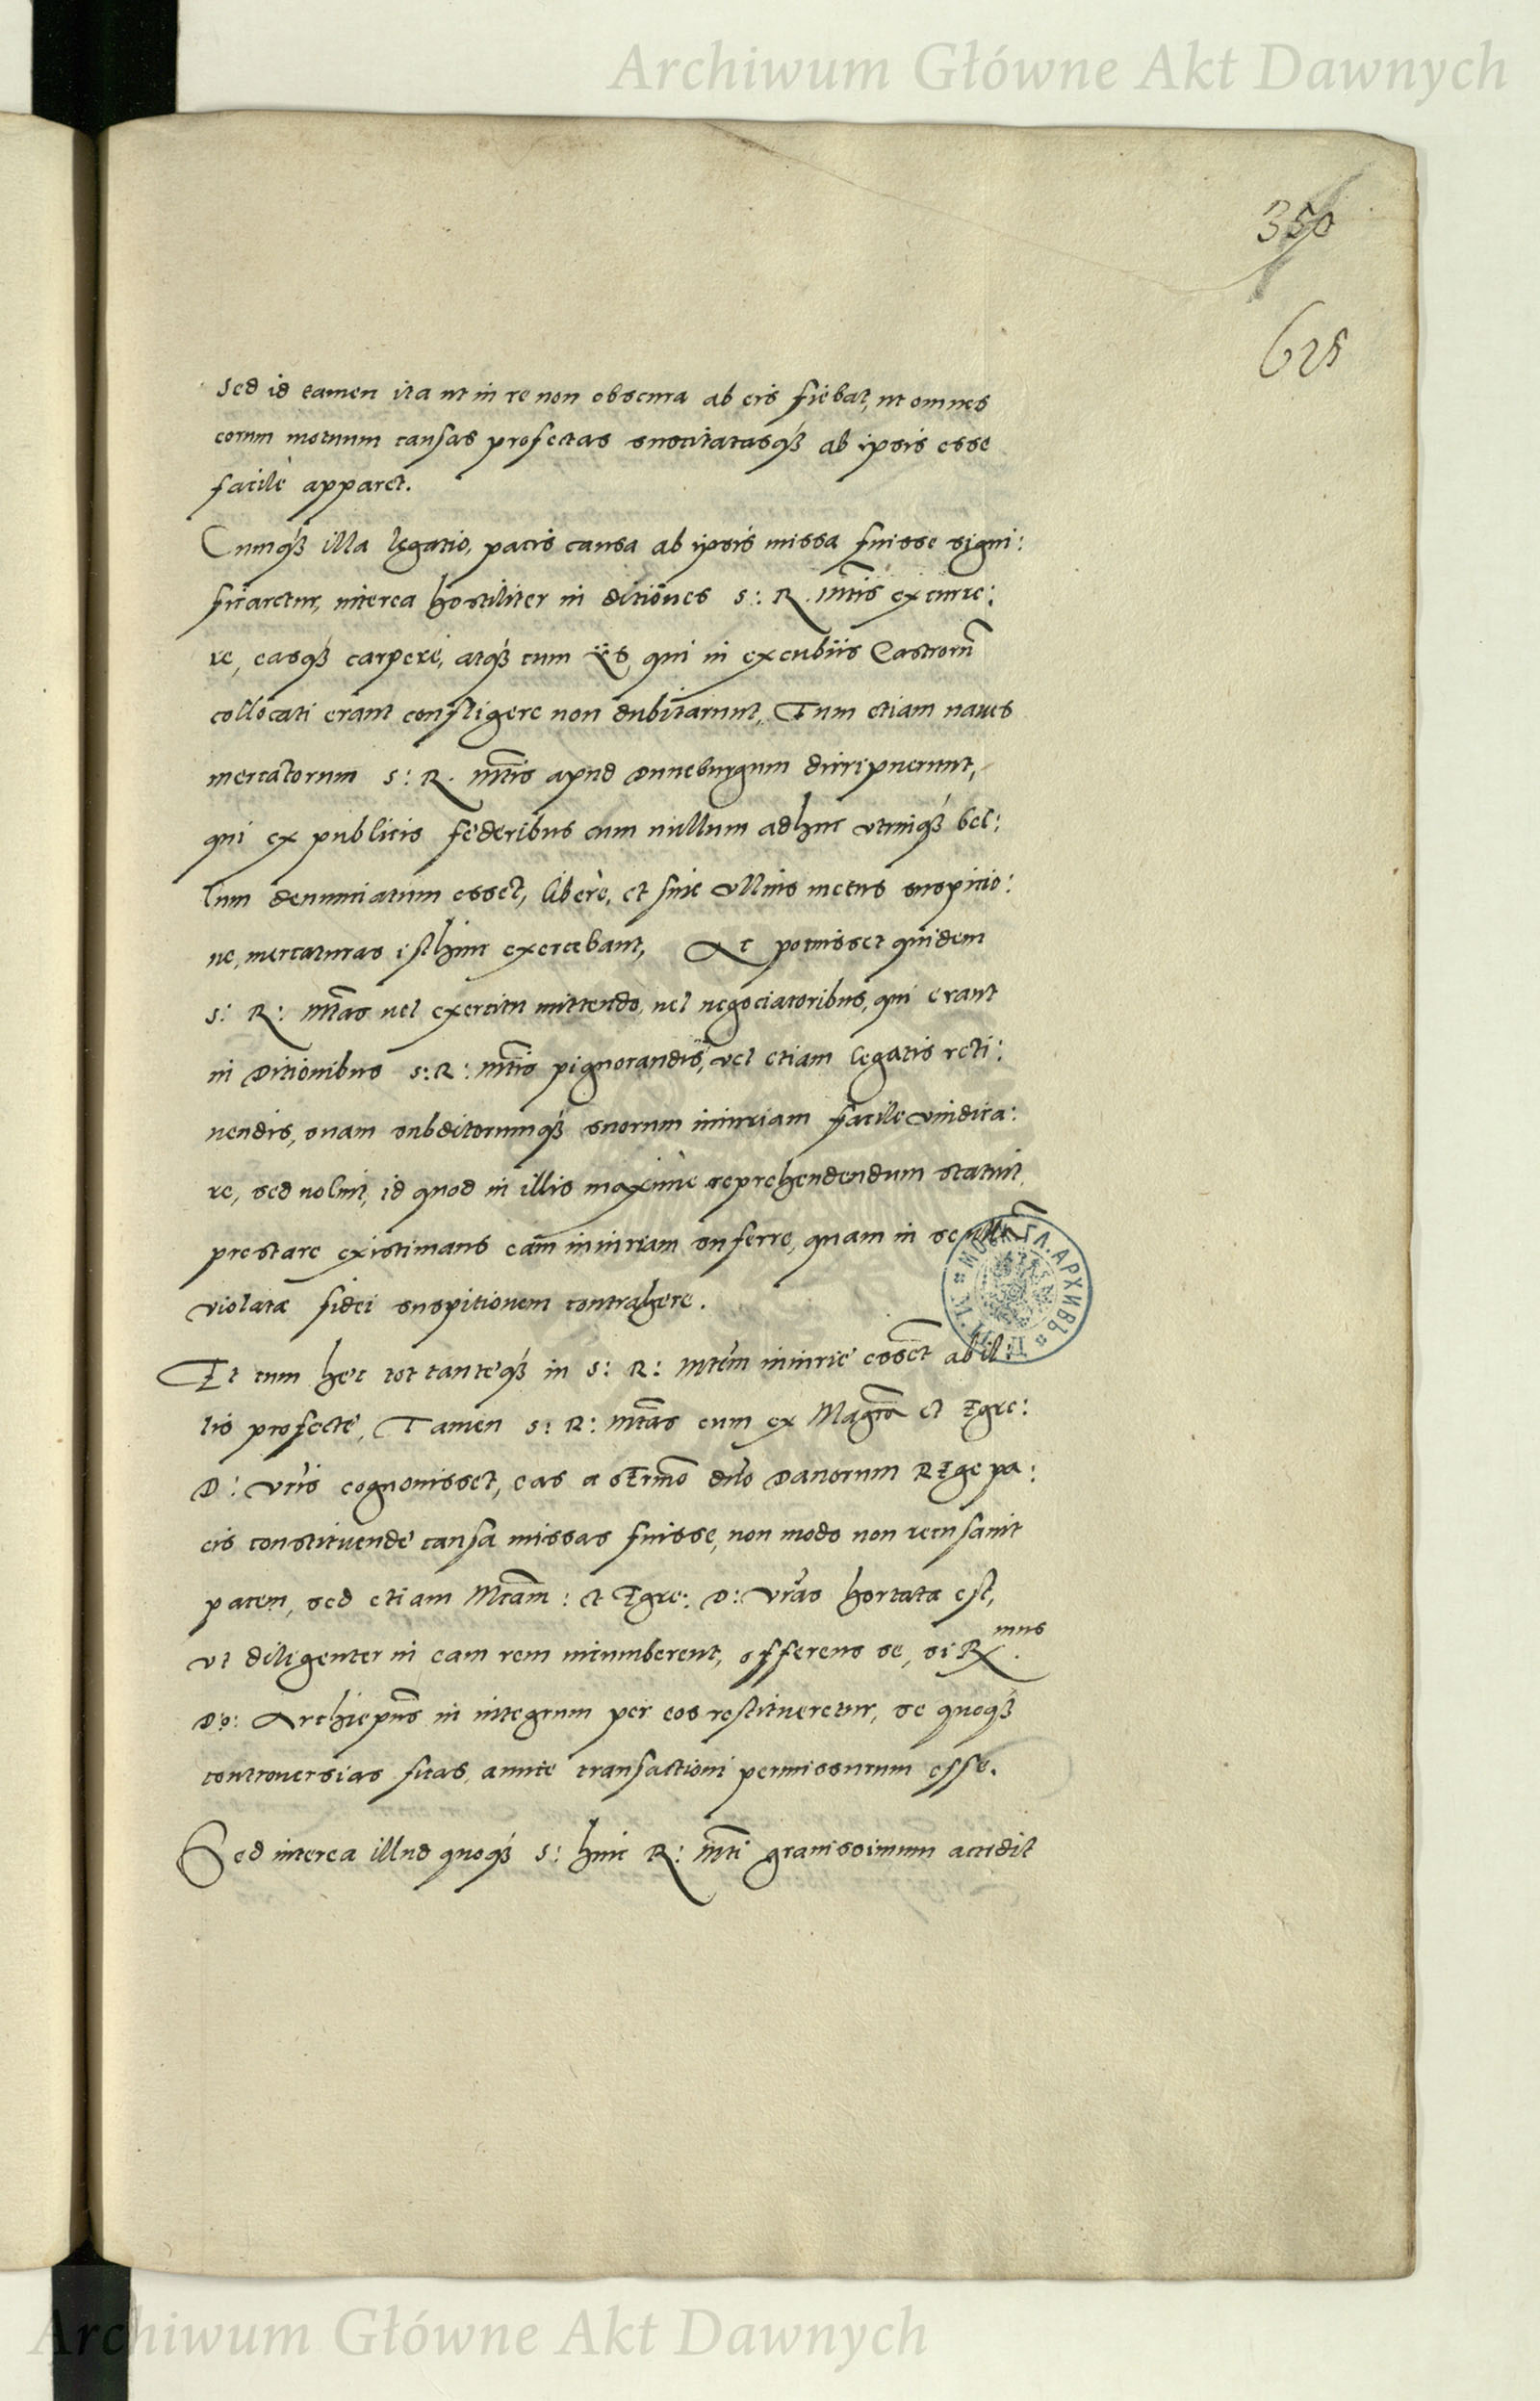 Archiwum Główne Akt Dawnych
350
625
Sed id tamen ita ut in re non obscura ab eis fiebat, ut omnes
eorum motuum causas profectas suscitatasq́ꝫ ab ipsis esse
facilè apparet.
Cumq́ꝫ illa legatio, pacis causa ab ipsis missa fuisse signi:
ficaretur, interea hostiliter in ditiones S: R. Mt̄is excurre:
re, easq́ꝫ carpere, atq́ꝫ cum iis, qui in excubiis Castrorū
collocati erant confligere non dubitarunt, Tum etiam naues
mercatorum S: R. Mt̄is apud Duneburgum dirripuerunt,
qui ex publicis federibus cum nullum adhuc utrinq́ꝫ bel:
lum denunciatum esset, liberè, et sine ullius metus suspicio:
ne, mercaturas isthinc exercebant, At potuisset quidem
S: R: Mt̄as uel exercitu mittendo, uel negociatoribus, qui erant
in Ditionibus S: R: Mt̄is pignorandis, vel etiam legatis reti:
nendis, suam subditorumq́ꝫ suorum iniuriam facile vindica:
re, sed noluit, id quod in illis maximè reprehendendum statuit,
prestare existimans eam iniuriam sufferre, quam in se
violatæ fidei suspitionem contrahere.
Et cum hec tot tanteq́ꝫ in S: R: Mtēm iniurie essent ab il:
lis profecte, Tamen S: R: Mt̄as cum ex Magcis et Egre:
D: vr̄is cognouisset, eas a sErmo dn̄o Danorum REge pa:
cis constituende causa missas fuisse, non modo non recusauit
pacem, sed etiam Mcam: et Egre: D: vr̄as hortata est,
ut diligenter in eam rem incumberent, offerens se, si Rmus.
Do: Archiepus in integrum per eos restitueretur, se quoq́ꝫ
controuersias suas, amice transactioni permissurum esse.
Sed interea illud quoq́ꝫ S: huic R: Mt̄i grauissimum accidit
Archiwum Główne Akt Dawnych